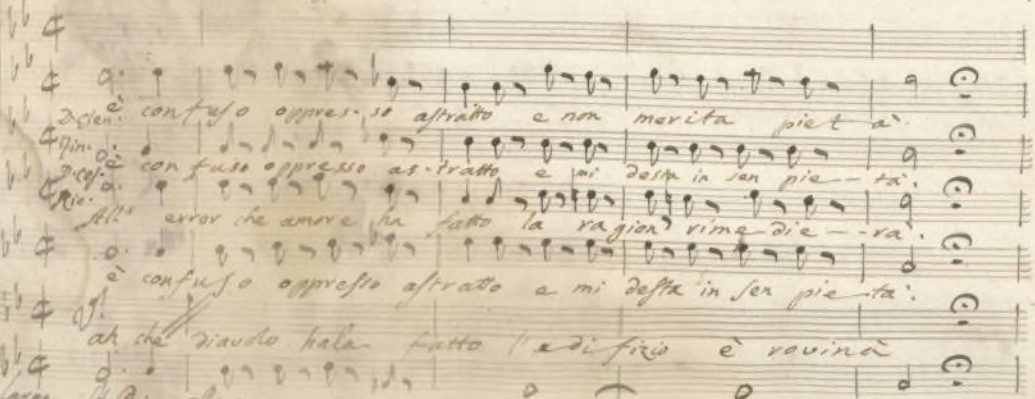 D. Clem: è confuso oppres-so astratto e non merita pietà.
Nin. è confuso oppresso as-tratto e mi desta in sen pie-tà.
Ric: All' error che amore ha fatto la ragion rime die--rà.
è confuso oppresso astratto e mi desta in sen pie ta'.
ah che diavolo hala fatto l'edifizio è rovinà